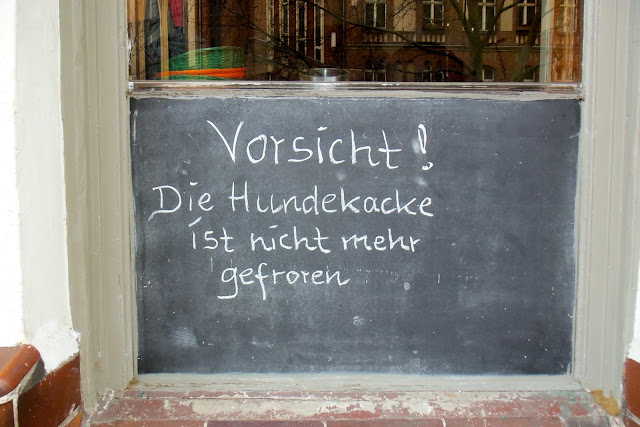 Vorsicht!
Die Hundekacke
ist nicht mehr
gefroren